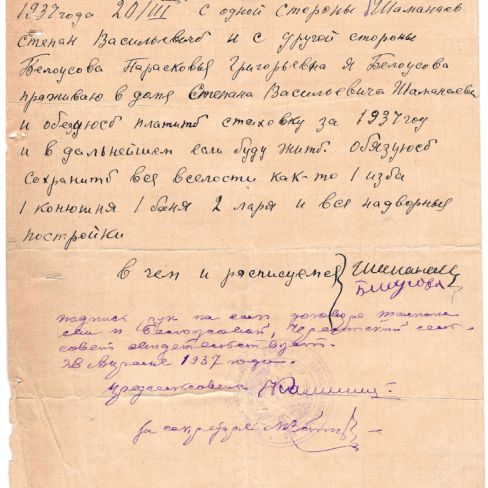 1937 года 20/III с одной стороны Шаманаев
Степан Васильевич и с другой стороны
Белоусова Парасковья Григорьевна я Белоусова
праживаю в доме Степана Васильевича Шаманаева
и обезуюсь платить стаховку за 1937 год
и в дальнейшем если буду жить. обязуюсь
сохранить все вселости как-то 1 изба
1 конюшня 1 баня 2 ларя и все надворныя
постройки
в чем и расписуемся
Белоусова
подпись рук на сем договоре
и Белоусовой, сель
совет свидетельствует.
1937 года.
предсельсовета
за секретаря